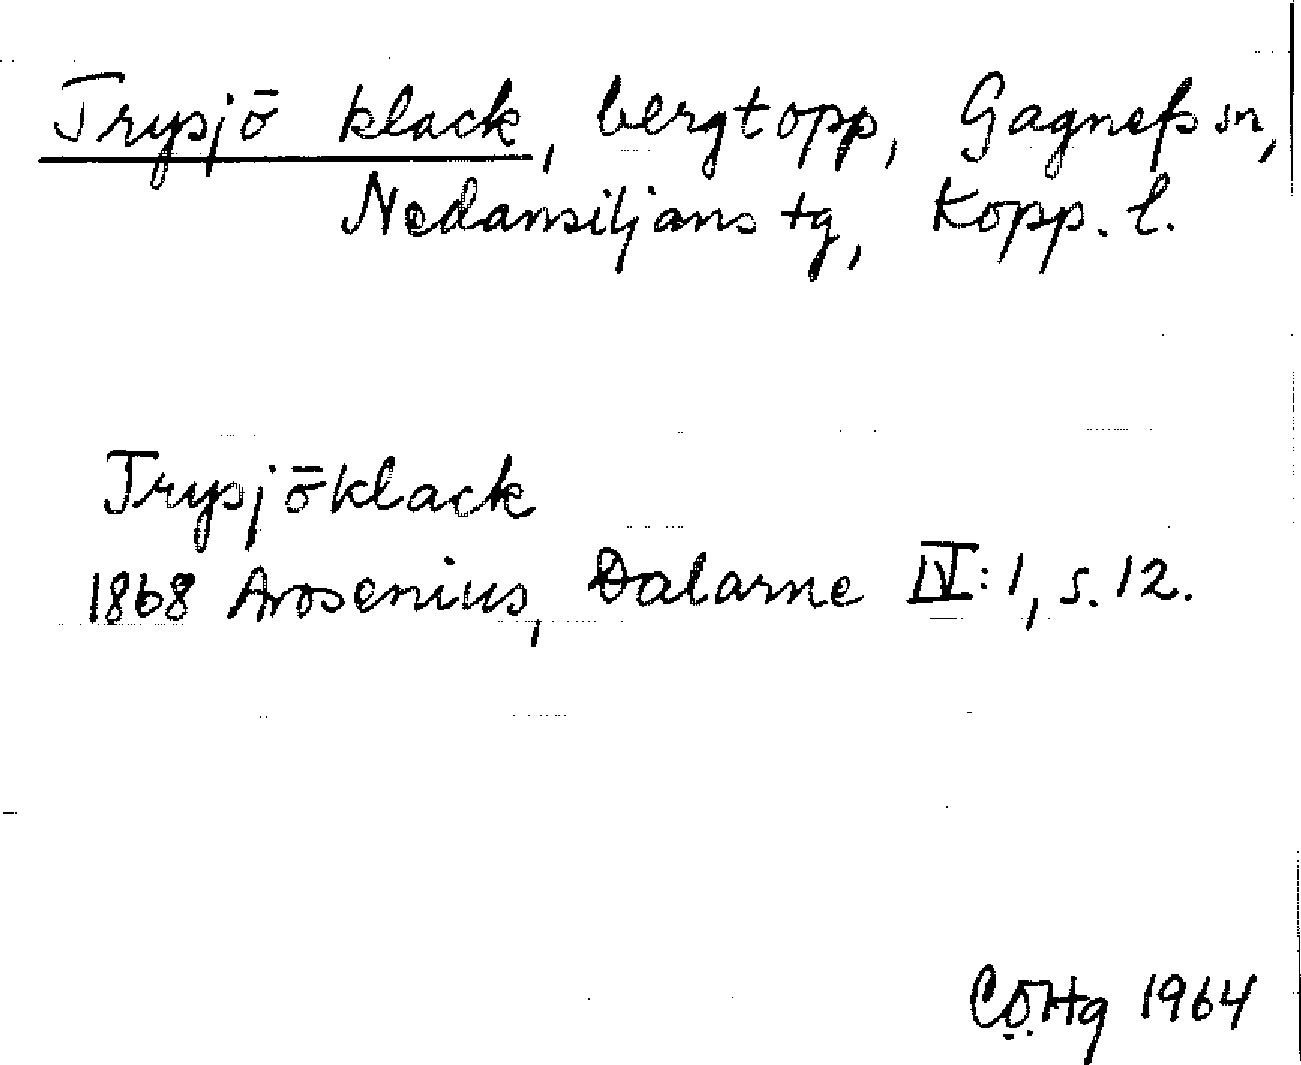 Trysjö klack, bergtopp, Gagnefs sn,
Nedansiljans tg, Kopp. l.
Trysjöklack
1868 Arosenius, Dalarne IV:1, s. 12.
CÖHg 1964